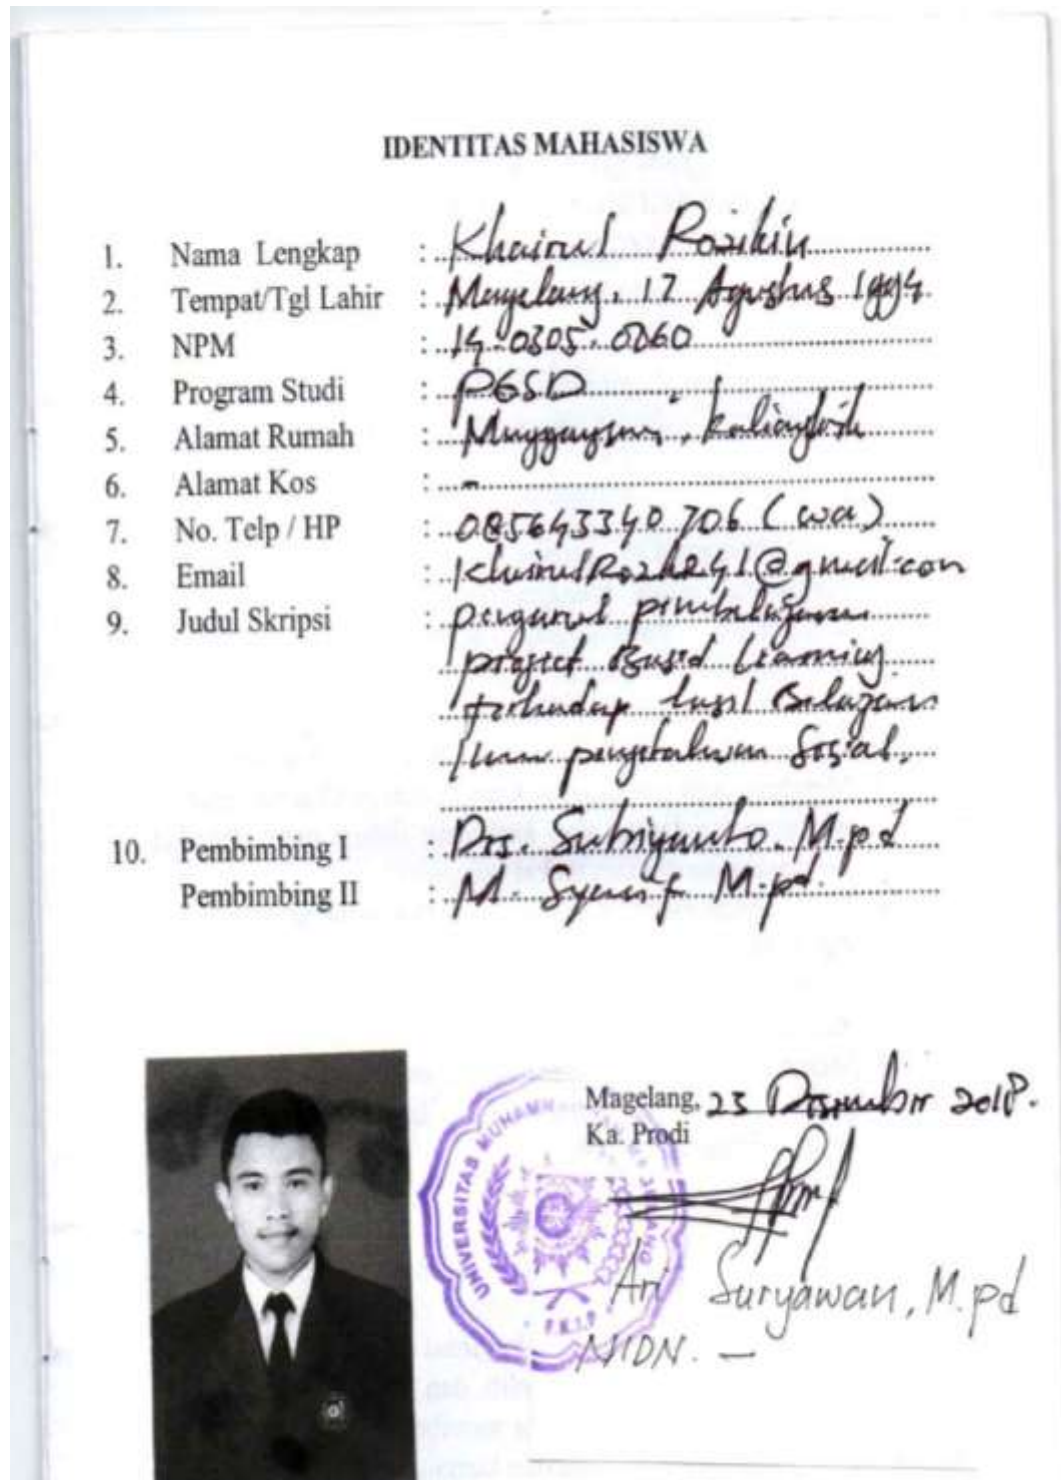 IDENTITAS MAHASISWA
1. Nama Lengkap : Khairul Rozikin
2. Tempat/Tgl Lahir : Magelang, 17 Agustus 1994
3. NPM : 14.0305.0060
4. Program Studi : PGSD
5. Alamat Rumah :
6. Alamat Kos : -
7. No. Telp / HP : 085643340706 (wa)
8. Email :
9. Judul Skripsi : pembelajaran
project Based Learning
terhadap hasil Belajar
Ilmu pengetahuan Sosial.
10. Pembimbing I : Drs. Subiyanto. M.pd
Pembimbing II : M. M.pd.
Magelang, 23 Desember 2018.
Ka. Prodi
UNIVERSITAS MUHAMM
F.K.I.P
Ari Suryawan, M.pd
NIDN. -